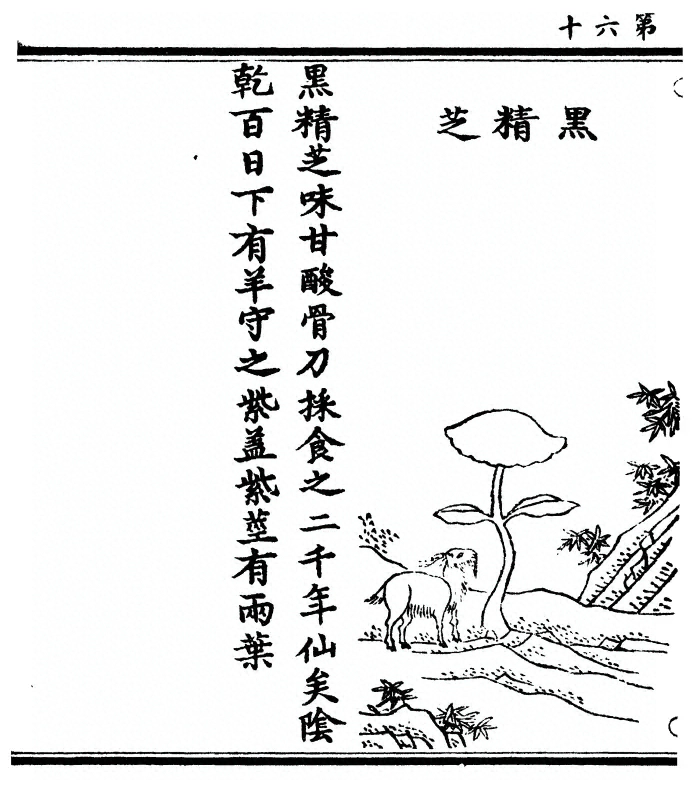 第六十
黑精芝
黑精芝味甘酸骨刀採食之二千年仙矣陰
乾百日下有羊守之紫盖紫莖有兩葉